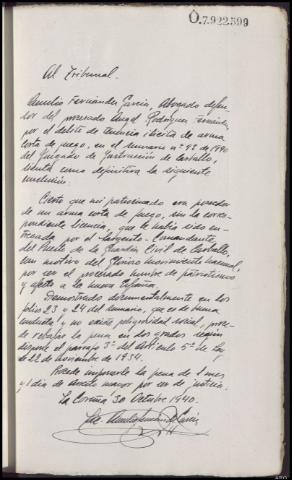 O.7.922.599
Al Tribunal.
Aurelio Fernández García, Abogado defen-
sor del procesado Angel Rodríguez Fernández,
por el delito de tenencia ilícita de arma
corta de fuego, en el sumario nº 92 de 1940
del Juzgado de Instrucción de Carballo,
sienta como definitiva la siguiente
conclusión:
Cierto que mi patrocinado era poseedor
de un arma corta de fuego, sin la corres-
pondiente licencia, que le había sido en-
tregada por el Sargento-Comandante
del Puesto de la Guardia Civil de Carballo,
con motivo del Glorioso movimiento nacional,
por ser el procesado hombre de patriotismo
y afecto a la nueva España.
Demostrado documentalmente en los
folios 23 y 24 del sumario, que es de buena
conducta, y no existe peligrosidad social, proce-
de rebajar la pena en dos grados según
dispone el párrafo 3º del Artículo 5º de la Ley
de 22 de Noviembre de 1934.
Procede imponerle la pena de 1 mes
y 1 día de arresto mayor por ser de justicia.
La Coruña 30 Octubre 1940.
Aurelio Fernández García